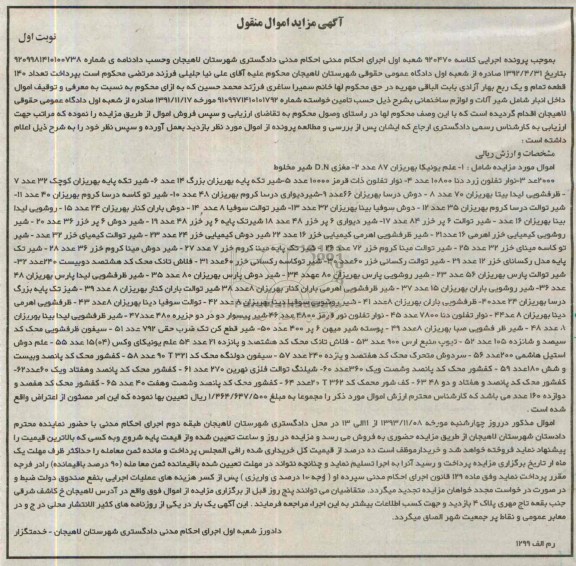 آگهی مزایده اموال منقول
نوبت اول
بموجب پرونده اجرایی کلاسه ۹۲۰۴۷۰ شعبه اول اجرای احکام مدنی احکام مدنی دادگستری شهرستان لاهیجان وحسب دادنامه ی شماره ۹۲۰۹۹۸۱۴۱۰۱۰۰۷۳۸
بتاریخ ۱۳۹۲/۴/۳۱ صادره از شعبه اول دادگاه عمومی حقوقی شهرستان لاهیجان محکوم علیه آقای علی نیا جلیلی فرزند مرتضی محکوم است بپرداخت تعداد ۱۴۰
قطعه تمام و یک ربع بهار آزادی بابت الباقی مهریه در حق محکوم لها خانم سمیرا ساغری فرزند محمد حسین که به ازای محکوم به نسبت به معرفی و توقیف اموال
داخل انبار شامل شیر آلات و لوازم ساختمانی بشرح ذیل حسب تامین خواسته شماره ۹۱۰۹۹۷۱۴۱۰۱۰۱۷۹۲ مورخه ۱۳۹۱/۱۱/۱۷ صادره از شعبه اول دادگاه عمومی حقوقی
لاهیجان اقدام گردیده است که با این وصف محکوم لها در راستای وصول محکوم به تقاضای ارزیابی و سپس فروش اموال از طریق مزایده را نموده که مراتب جهت
ارزیابی به کارشناس رسمی دادگستری ارجاع که ایشان پس از بررسی و مطالعه پرونده از اموال مورد نظر بازدید بعمل آورده و سپس نظر خود را به شرح ذیل اعلام
داشته است :
مشخصات و ارزش ریالی
اموال مورد مزایده شامل : ۱- علم یونیکا بهریزان ۸۷ عدد ۲- مغزی D.N شیر مخلوط
۲۰۰۰عدد ۳-نوار تفلون زرد دنا ۱۰۸۰۰ عدد ۴- نوار تفلون ذات قرمز ۱۰۰۰۰ عدد ۵-شیر تکه پایه بهریزان بزرگ ۱۴ عدد ۶- شیر تکه پایه بهریزان کوچک ۳۲ عدد ۷
- ظرفشویی لیدا بیتا بهریزان ۷۰ عدد ۸ - دوش بیتا بهریزان ۶۶عدد ۹-شیردیواری درسا کروم بهریزان ۴۸ عدد ۱۰- شیر تو کاسه درسا کروم بهریزان ۴۰ عدد ۱۱-
شیر توالت درسا کروم بهریزان ۳۵ عدد ۱۲- دوش سوفیا بینا بهریزان ۳۲ عدد ۱۳- شیر توالت سوفیا ۸ عدد ۱۴- دوش باران کنار بهریزان ۲۴ عدد ۱۵- روشویی لیدا
بینا بهریزان ۱۶ عدد - شیر توالت ۶ پر خزر ۸۴ عدد ۱۷- شیر دیواری ۶ پر خزر ۴۸ عدد ۱۸ شیرتک پایه ۶ پر خزر ۴۸ عدد ۱۹ - شیر دوش ۶ پر خزر ۳۶ عدد ۲۰- شیر
روشویی کیمیایی خزر اهرمی ۱۶عدد ۲۱- شیر ظرفشویی اهرمی کیمیایی خزر ۱۶ عدد ۲۲ شیر دوش کیمیایی خزر ۲۴ عدد ۲۳- شیر توالت کیمیای خزر ۳۲ عدد - شیر
تو کاسه مینای خزر ۳۲ عدد ۲۵ - شیر توالت مینا کروم خزر ۷۲ عدد ۲۶ - شیر تک پایه مینا کروم خزر ۷ عدد ۲۷- شیر دوش مینا کروم خزر ۳۶ عدد ۲۸ - شیر تک
پایه مدل رکسانای خزر ۱۲ عدد ۲۹ - شیر توالت رکسانی خزر ۶۰عدد ۳۰- شیر توکاسه رکسانی خزر ۶۰عدد ۳۱ - فلاش تانک محک کد هشتصد دوبیست ۲۴۰عدد ۳۲-
شیر توالت پارس بهریزان ۵۶ عدد ۲۳- شیر روشویی پارس بهریزان ۸۰ عهدد ۳۴- شیر دوش پارس بهریزان ۸۰ عدد ۳۵ - شیر ظرفشویی لیدا پارس بهریزان ۴۸
عدد ۳۶- شیر روشویی باران بهریزان ۱۵ عدد ۳۷- شیر ظرفشویی اهرمی باران کنار بهریزان ۸عدد ۳۸ شیر توالت باران کنار بهریزان ۸ عدد ۳۹ - شیر تک پایه بزرگ
درسا بهریزان ۲۴ عدد۴۰- ظرفشویی باران بهریزان ۸عدد ۴۱ - شیر روشویی سوفیا دینا بهریزان ۸عدد ۴۲- توالت سوفیا دینا بهریزان ۸عدد ۴۳- ظرفشویی اهرمی
دینا بهریزان ۸ عدد۴۴ - نوار تفلون دنا ۷۸۰۰ عدد ۴۵- نوار تفلون نور قرمز ۴۸۰۰ عدد ۴۶ شیر پیسوار دو در دو جزیره ۴۸۰ عدد۴۷- شیر ظرفشویی لیدا بینا بهریزان
۱۰ عدد ۴۸ - شیر ظر فشویی صبا بهریزان ۸عدد ۴۹- پوسته شیر میهن ۶ پر ۴۰۰ عدد ۵۰- شیر قطع کن تک ضرب حقی ۷۹۲ عدد ۵۱ - سیفون ظرفشویی محک کد
سیصد و شانزده ۱۰۵ عدد ۵۲ - دیوپ منبع ارس ۹۰۰ عدد ۵۳ - فلاش تانک محک کد هشتصد و پانزده ۲۱ عدد ۵۴ علم یونیکای وکس (۰۴)۱۵ عدد ۵۵ - علم دوش
استیل هاشمی ۲۰۰عدد ۵۶ - سردوش متحرک محک کد هفتصد و یازده ۲۴۰ عدد ۵۷ - سیفون دولنگه محک کد T ۳۲۱ ۹۰ عدد ۵۸ - کفشور محک کد پانصد وبیست
و شش ۱۸۰عدد ۵۹ - کفشور محک کد پانصد وشصت ویک ۳۶۰عدد ۶۰- شیلنگ توالت فلزی نهرین ۲۷۰ عدد ۶۱ - کفشور محک کد پانصد وهفتاد ویک ۶۰عدد۶۲-
کفشور محک کد پانصد و هفتاد و دو ۴۸ ۶۳- کف شور محمک کد T ۳۶۲ ۲۰عدد ۶۴ - کفشور محک کد پانصد وشصت وهفت ۴۰ عدد ۶۵ - کفشور محک کد هفصد و
دوازده ۱۶۰ عدد می باشد که کارشناس محترم ارزش اموال مورد ذکر را مجموعا به مبلغ ۱/۴۶۴/۶۴۷/۵۰۰ ریال تعیین بها نموده که این امر مصئون از اعتراض واقع
شده است .
اموال مذکور درروز چهارشنبه مورخه ۱۳۹۳/۱۱/۰۸ از ۱۱الی ۱۳ در محل دادگستری شهرستان لاهیجان طبقه دوم اجرای احکام مدنی با حضور نماینده محترم
دادستان شهرستان لاهیجان از طریق مزایده حضوری به فروش می رسد و مزایده در روز و ساعت تعیین شده واز قیمت پایه شروع وبه کسی که بالاترین قیمت را
پیشنهاد نماید فروخته خواهد شد و خریدارموقف است ده درصد از قیمت کل خریداری شده رافی المجلس پرداخت و مانده ثمن معامله را حداکثر ظرف مهلت یک
ماه از تاریخ برگزاری مزایده پرداخت و رسید آنرا به اجرا تسلیم نماید و چنانچه نتواند در مهلت تعیین شده باقیمانده ثمن معا مله (۹۰ درصد باقیمانده) رادر فرجه
مقرر پرداخت نماید وفق ماده ۱۲۹ قانون اجرای احکام مدنی سپرده او ( اوجه ۱۰ درصد ی واریزی ) پس از کسر هزینه های عملیات اجرایی بنفع صندوق دولت ضبط و
در صورت در خواست مجدد خواهان مزایده تجدید میگردد. متقاضیان می توانند پنج روز قبل از برگزاری مزایده از اموال فوق واقع در آدرس لاهیجان خ کاشف شرقی
جنب بقعه تاج مهری پلاک ۴ بازدید و جهت کسب اطلاعات بیشتر به این اجراء مراجعه فرمایند . این آگهی یک بار در یکی از روزنامه های کثیر الانتشار محلی در ج و در
معابر عمومی و نقاط پر جمعیت شهر الصاق میگردد.
دادورز شعبه اول اجرای احکام مدنی دادگستری شهرستان لاهیجان - خدمتگزار
رم الف ۱۲۹۹